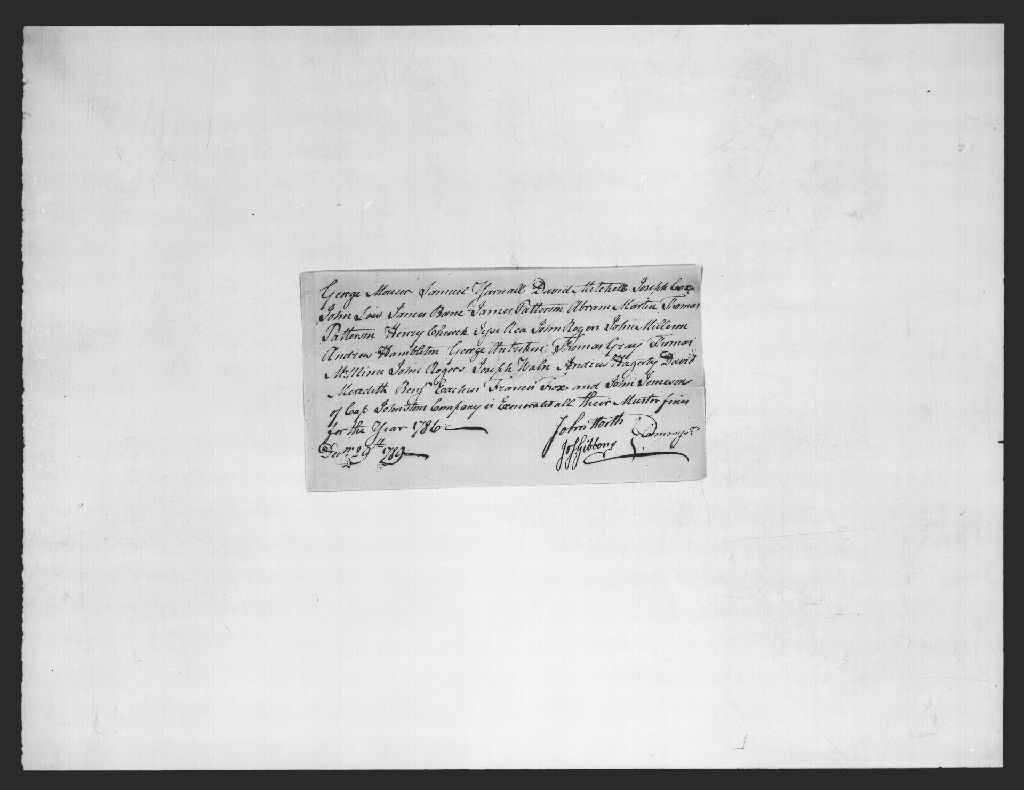 George Mouser Samuel Yarnall David Mitchell Joseph Cox
John Low James Bane James Patterson Abram Martin Thomas
Patterson Henry Church Jesse Rea John Rogers John Millison
Andrew Hambleton George Thomas Gray Thomas
John Rogers Joseph Andrew Hagerty David
Meredith Benjn Eachus Francis Fox and John Jemeson
of Capt Johnstons Company is Exonerated all their Muster fines
for the Year 1786
John Worth
Jos Gibbons
Decmr 29th 1789